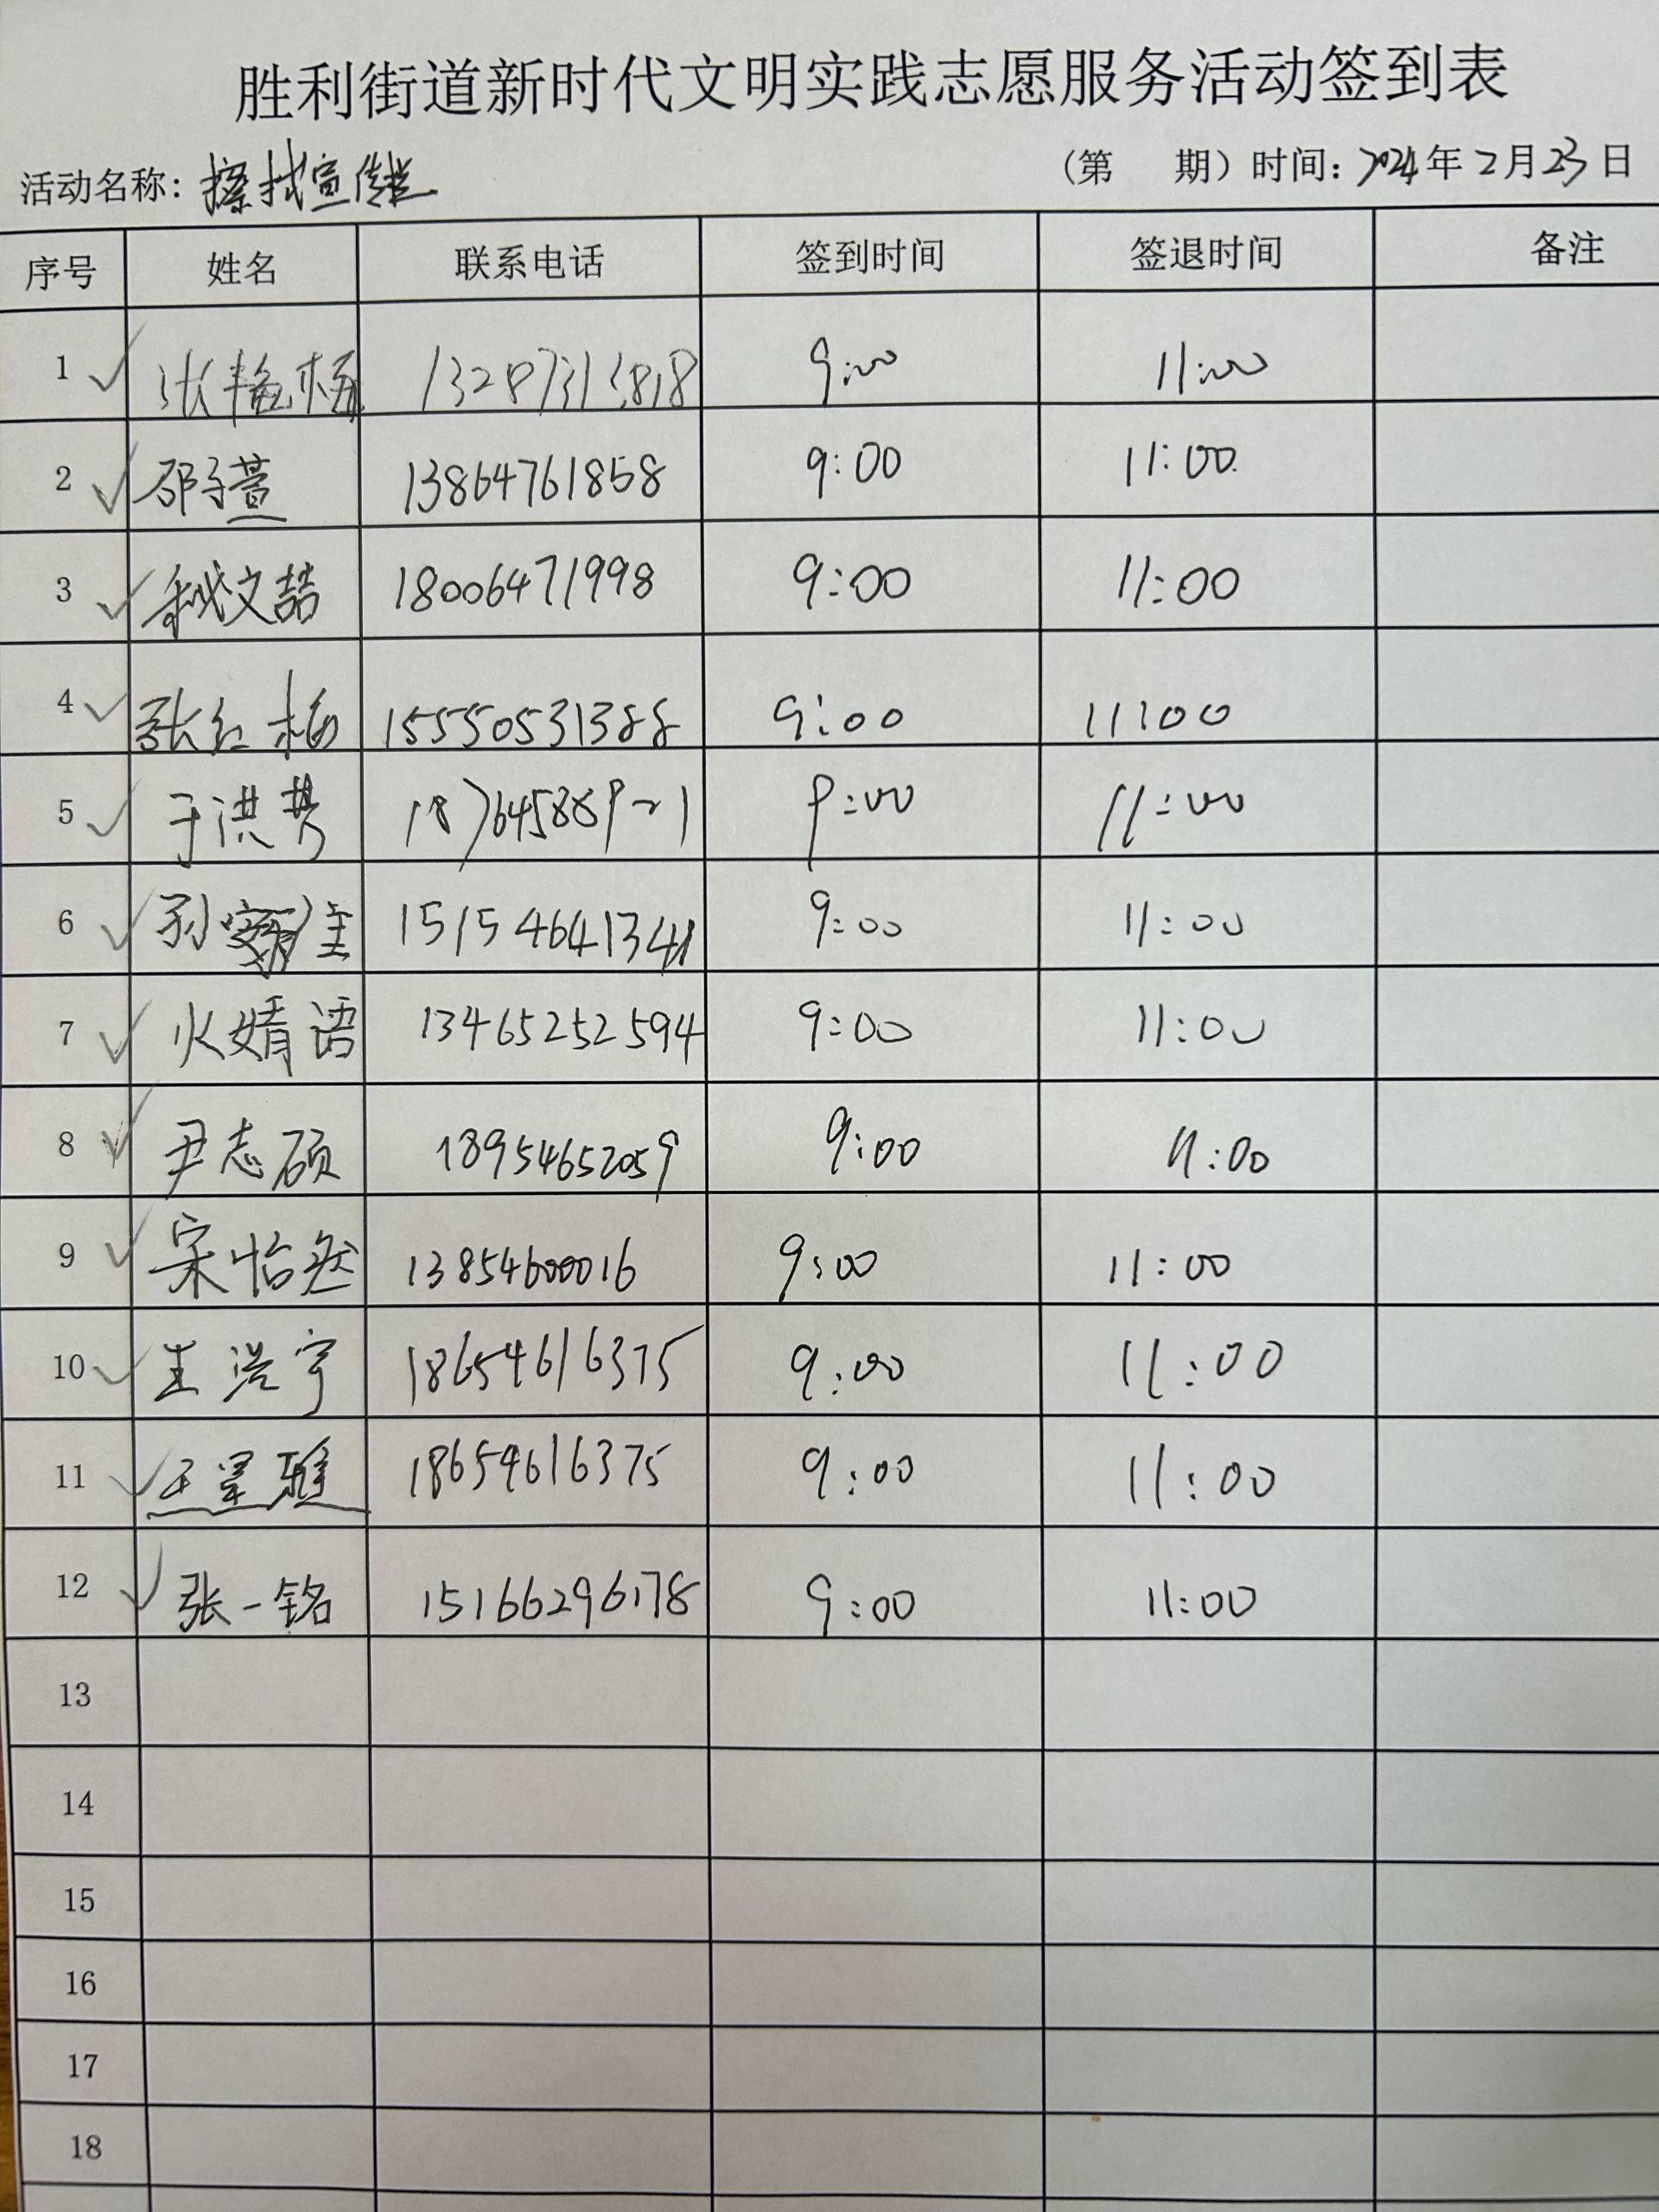 胜利街道新时代文明实践志愿服务活动签到表
活动名称：擦拭宣传栏 （第 期）时间：2024年2月23日
序号 姓名 联系电话 签到时间 签退时间 备注
1 张艳梅 9:00 11:00
2 邵子萱 13864761858 9:00 11:00
3 文喆 18006471998 9:00 11:00
4 张红梅 15550531388 9:00 11:00
5 于洪 9:00 11:00
6 孙 15154641341 9:00 11:00
7 火婧语 13465252594 9:00 11:00
8 尹志硕 18954652059 9:00 11:00
9 宋怡然 13854600016 9:00 11:00
10 王浩宇 18654616375 9:00 11:00
11 王星雅 18654616375 9:00 11:00
12 张一铭 15166296178 9:00 11:00
13
14
15
16
17
18